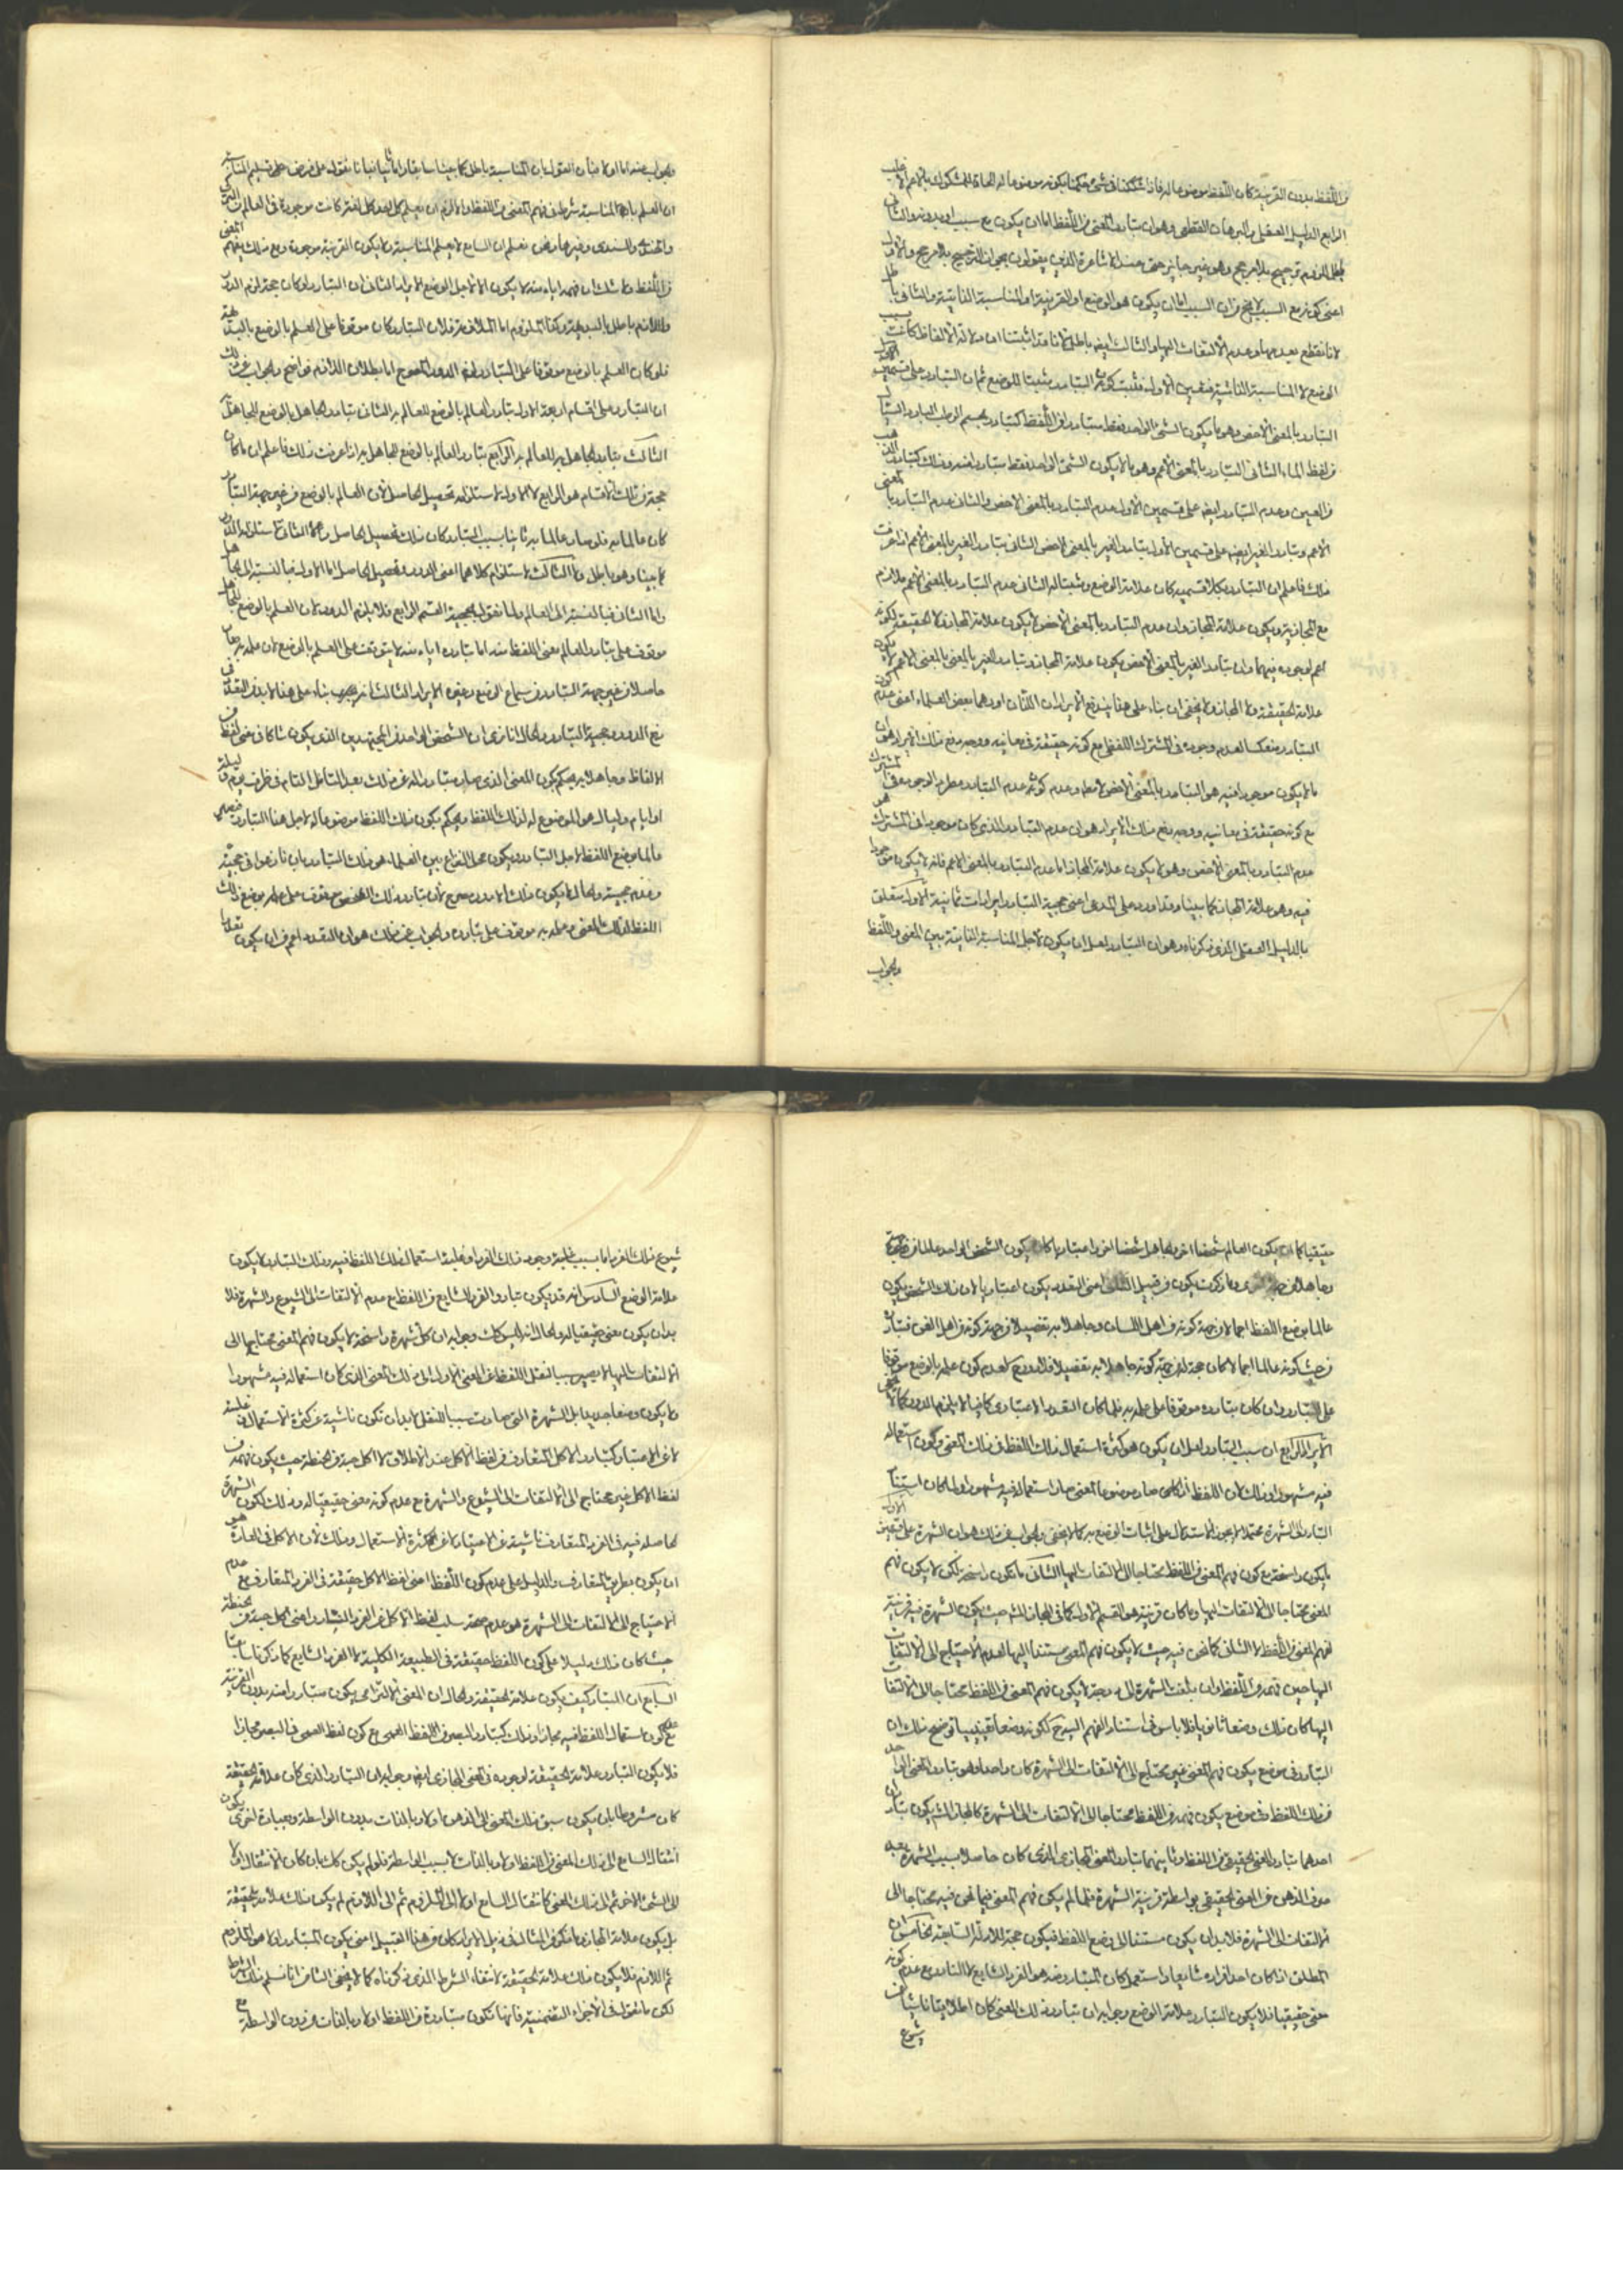 من اللفظ بدون القرينة كان اللفظ موضوعا له فاذا شككنا في شيء حكمنا بكونه موضوعا له الحاقا للمشكوك بالاعم الاغلب
الرابع الدليل العقلي والبرهان القطعي وهو ان تبادر المعنى من اللفظ اما ان يكون مع سبب او بدونه والثاني
باطل للزوم ترجيح بلا مرجح وهو غير جايز حتى عند الاشاعرة الذين يقولون بجواز الترجيح بلا مرجح والاول
اعنى كونه مع السبب لا يخ من ان السبب اما ان يكون هو الوضع او القرينة او المناسبة الذاتية والثانى باطل
لانا نقطع بعدمها وعدم الالتفات اليها والثالث ايضا باطل لانا قد اثبتنا ان دلالة الالفاظ كانت بسبب
الوضع لا المناسبة الذاتية فتعين الاول فثبت كون التبادر مثبتا للوضع ثم ان التبادر على قسمين الاول
التبادر بالمعنى الاخص وهو ما يكون الشئ الواحد فقط متبادرا من اللفظ كتبادر الجسم الرطب البارد السيال
من لفظ الماء الثانى التبادر بالمعنى الاعم وهو ما لا يكون الشئ الواحد فقط متبادرا منه وذلك كتبادر الذهب
من العين وعدم التبادر ايضا على قسمين الاول عدم التبادر بالمعنى الاخص والثانى عدم التبادر بالمعنى
الاعم وتبادر الغير ايضا على قسمين الاول تبادر الغير بالمعنى الاخص الثانى تبادر الغير بالمعنى الاعم اذا عرفت
ذلك فاعلم ان التبادر بكلا قسميه كان علامة الوضع ومثبتا له الثانى عدم التبادر بالمعنى الاعم ملازم
مع المجازية ويكون علامة المجاز وان عدم التبادر بالمعنى الاخص لا يكون علامة المجاز ولا الحقيقة لكونه
اعم لوجوده فيهما وان تبادر الغير بالمعنى الاخص يكون علامة المجاز وتبادر الغير بالمعنى الاعم لا يكون
علامة الحقيقة ولا المجاز ولا يخفى ان بناء على هذا يندفع الايرادان اللذان اوردهما بعض العلماء اعنى عدم كون
التبادر منعكسا لعدم وجوده في المشترك اللفظى مع كونه حقيقة في معانيه ووجه دفع ذلك الايراد هو ان
ما لا يكون موجودا فيه هو التبادر بالمعنى الاخص لا مطلقا وعدم كون عدم التبادر مطردا لوجوده فى المشترك
مع كونه حقيقة في معانيه ووجه دفع ذلك الايراد هو ان عدم التبادر الذى كان موجودا في المشترك هو
عدم التبادر بالمعنى الاخص وهو لا يكون علامة المجاز اما عدم التبادر بالمعنى الاعم فانه لا يكون موجودا
فيه وهو علامة المجاز كما بينا وقد اورد على المدعى اعنى حجية التبادر ايرادات ثمانية الاول متعلق
بالدليل العقلى الذى ذكرناه وهو ان التبادر لعل ان يكون لاجل المناسبة الذاتية بين المعنى واللفظ
والجواب
والجواب عنه اما اولا فبان القول بان المناسبة باطل كما بينا سابقا واما ثانيا فبانا نقول على فرض تسليم المناسبة
ان العلم بالمناسبة شرط فى فهم المعنى من اللفظ والا لزم ان يعلم كل احد كل لغة كانت موجودة في العالم من العربى
والهندى والسندى وغيرها ونحن نعلم ان السامع لا يعلم المناسبة ولا يكون القرينة موجودة ومع ذلك يفهم المعنى
من اللفظ ولا شك ان فهمه اياه منه لا يكون الا لاجل الوضع الايراد الثانى ان التبادر لو كان حجة لزم الدور
واللازم باطل بالبديهة وكذا الملزوم اما الملازمة فلان التبادر كان موقوفا على العلم بالوضع بالبديهة
فلو كان العلم بالوضع موقوفا على التبادر لزم الدور المصرح اما بطلان اللازم فواضح والجواب عن ذلك
ان التبادر على اقسام اربعة الاول تبادر العالم بالوضع للعالم به الثانى تبادر الجاهل بالوضع للجاهل به
الثالث تبادر الجاهل به للعالم به الرابع تبادر العالم بالوضع للجاهل به اذا عرفت ذلك فاعلم ان ما كان
حجة من تلك الاقسام هو الرابع لا الاول لاستلزامه تحصيل الحاصل لان العالم بالوضع من غير جهة التبادر
كان عالما به فلو صار عالما به ثانيا بسبب التبادر كان ذلك تحصيل الحاصل ولا الثانى لاستلزامه الدور
كما بينا وهو باطل ولا الثالث لاستلزام كلاهما اعنى الدور وتحصيل الحاصل اما الاول فبالنسبة الى الجاهل
واما الثانى فبالنسبة الى العالم ولما نقول بحجية القسم الرابع فلا يلزم الدور لان العلم بالوضع للجاهل
موقوف على تبادر العالم معنى اللفظ منه اما تبادره اياه منه لا يتوقف على العلم بالوضع لان علمه به كان
حاصلا من غير جهة التبادر من سماع الوضع وغيره الايراد الثالث انه بناء على هذا لا يندفع
الدور بحجية التبادر والحال انا نرى ان الشخص الواحد من المجتهدين الذى يكون شاكا فى معنى لفظ من
الالفاظ وجاهلا به يحكم بكون المعنى الذى صار متبادرا له من ذلك بعد التامل التام فى ظرف يوم او ليلة
او ايام وليال هو الموضوع له لذلك اللفظ ويحكم بكون ذلك اللفظ موضوعا له لاجل هذا التبادر فيصير
عالما بوضع اللفظ لاجل التبادر ويكون محل النزاع بين العلماء هو ذلك التبادر بان نازعوا فى حجيته
وعدم حجيته والحال لا يكون ذلك الا دور مصرح لان تبادر ذلك الشخص موقوف على علمه بوضع ذلك
اللفظ لذلك المعنى وعلمه به موقوف على تبادره والجواب عن ذلك هو ان التعدد اعم من ان يكون تعددا
حقيقيا كما ان يكون العالم شخصا اخر والجاهل شخصا اخر او اعتباريا كان يكون الشخص الواحد عالما من جهة
وجاهلا من جهة اخرى وما ذكرت يكون من قبيل الثانى اعنى التعدد يكون اعتباريا لان ذلك الشخص يكون
عالما بوضع اللفظ اجمالا من جهة كونه من اهل اللسان وجاهلا به تفصيلا من جهة كونه من اهل الفن فتبادره
من حيث كونه عالما اجمالا كان حجة له من حيث كونه جاهلا به تفصيلا فلا دور ح لعدم كون علمه بالوضع موقوفا
على التبادر وان كان تبادره موقوفا على علمه به فلما كان التعدد الاعتبارى كافيا لا يلزم الدور كما لا يخفى
الايراد الرابع ان سبب التبادر لعل ان يكون هو كثرة استعمال ذلك اللفظ فى ذلك المعنى وكون استعماله
فيه مشهورا وذلك لان اللفظ اذا كان صار موضوعا لمعنى صار استعماله فيه مشهورا ولما كان استناد
التبادر الى الشهرة محتملا لا يجوز الاستدلال على اثبات الوضع به كما لا يخفى والجواب عن ذلك هو ان الشهرة على قسمين الاول
ما يكون راسخة مع كون فهم المعنى من اللفظ محتاجا الى الالتفات اليها الثانى ما يكون راسخة لكن لا يكون فهم
المعنى محتاجا الى الالتفات اليها وما كان قرينة هو القسم الاول كما فى المجاز المشهور حيث يكون الشهرة فيه قرينة
لفهم المعنى من اللفظ لا الثانى كما نحن فيه حيث لا يكون فهم المعنى مستندا اليها لعدم الاحتياج الى الالتفات
اليها حين فهمه من اللفظ وان بلغت الشهرة الى درجة لا يكون فهم المعنى من اللفظ محتاجا الى الالتفات
اليها كان ذلك وضعا ثانويا فلا باس فى استناد الفهم اليه ح لكونه وضعا تعينيا توضيح ذلك ان
التبادر فى موضع يكون فهم المعنى غير محتاج الى الالتفات الى الشهرة كان واحدا وهو تبادر المعنى الواحد
من ذلك اللفظ وفى موضع يكون فهمه من اللفظ محتاجا الى الالتفات الى الشهرة كالمجاز المشهور يكون تبادران
احدهما تبادر المعنى الحقيقى من اللفظ وثانيهما تبادر المعنى المجازى الذى كان حاصلا بسبب الشهرة بعد
صرف الذهن من المعنى الحقيقى بواسطة قرينة الشهرة فلما لم يكن فهم المعنى فيما نحن فيه محتاجا الى
الالتفات الى الشهرة فلا بد ان يكون مستندا الى وضع اللفظ فيكون حجة للادلة السابقة الخامس ان
المطلق اذا كان احد افراده شايعا واستعمل كان المتبادر منه هو الفرد الشايع لا النادر مع عدم كونه
معنى حقيقيا فلا يكون التبادر علامة الوضع وجوابه ان تبادر ذلك المعنى كان اطلاقيا ناشيا من
شيوع
شيوع ذلك الفرد اما بسبب غلبة وجود ذلك الفرد او غلبة استعمال ذلك اللفظ فيه وذلك التبادر لا يكون
علامة الوضع السادس انه قد يكون تبادر الفرد الشايع من اللفظ مع عدم الالتفات الى الشيوع والشهرة فلا
بد ان يكون معنى حقيقيا له والحال انه ليس كك وجوابه ان كل شهرة راسخة لا يكون فهم المعنى محتاجا الى
الالتفات اليها لا يصير سببا لنقل اللفظ عن المعنى الاول الى ذلك المعنى الذى كان استعماله فيه مشهورا
ولا يكون وضعا جديدا بل الشهرة التى صارت سببا للنقل لا بد ان تكون ناشية عن كثرة الاستعمال وغلبته
لا عن الاعتبار كتبادر الاكل المتعارف من لفظ الاكل عند الاطلاق لا اكل حبة من الحنطة حيث يكون فهمه من
لفظ الاكل غير محتاج الى الالتفات الى الشيوع والشهرة مع عدم كونه معنى حقيقيا له وذلك لكون الشهرة
الحاصلة فيه فى الفرد المتعارف ناشية عن الاعتبار لا عن كثرة الاستعمال وذلك لان الاكل فى العادة هو
ان يكون بطريق المتعارف والدليل على عدم كون اللفظ اعنى لفظ الاكل حقيقة فى الفرد المتعارف مع عدم
الاحتياج الى الالتفات الى الشهرة هو عدم صحة سلب لفظ الاكل من الفرد النادر اعنى اكل حبة من الحنطة
حيث كان ذلك دليلا على كون اللفظ حقيقة فى الطبيعة الكلية لا الفرد الشايع كما ذكرنا سابقا
السابع ان التبادر كيف يكون علامة الحقيقة والحال ان المعنى الالتزامى يكون متبادرا منه بدون القرينة
مع كون استعمال اللفظ فيه مجازا وذلك كتبادر البصر من اللفظ العمى مع كون لفظ العمى فى البصر مجازا
فلا يكون التبادر علامة الحقيقة لوجوده فى المعنى المجازى ايضا وجوابه ان التبادر الذى كان علامة الحقيقة
كان مشروطا بان يكون سبق ذلك المعنى الى الذهن اولا وبالذات بدون الواسطة وبعبارة اخرى يكون
انتقال السامع الى ذلك المعنى من اللفظ اولا وبالذات لا بسبب الواسطة فلو لم يكن كك بان كان الانتقال اولا
الى الشئ الاخر ثم الى ذلك المعنى كانتقال السامع اولا الى الملزوم ثم الى اللازم لم يكن ذلك علامة الحقيقة
بل يكون علامة المجاز وما ذكر من المثال فى ذيل الايراد كان من هذا القبيل اعنى يكون المتبادر اولا هو الملزوم
ثم اللازم فلا يكون ذلك علامة الحقيقة لانتفاء الشرط الذى ذكرناه كما لا يخفى الثامن انا نسلم ذلك الشرط
لكن ما تقول فى الاجزاء التضمنية فانها تكون متبادرة من اللفظ اولا وبالذات من دون الواسطة مع